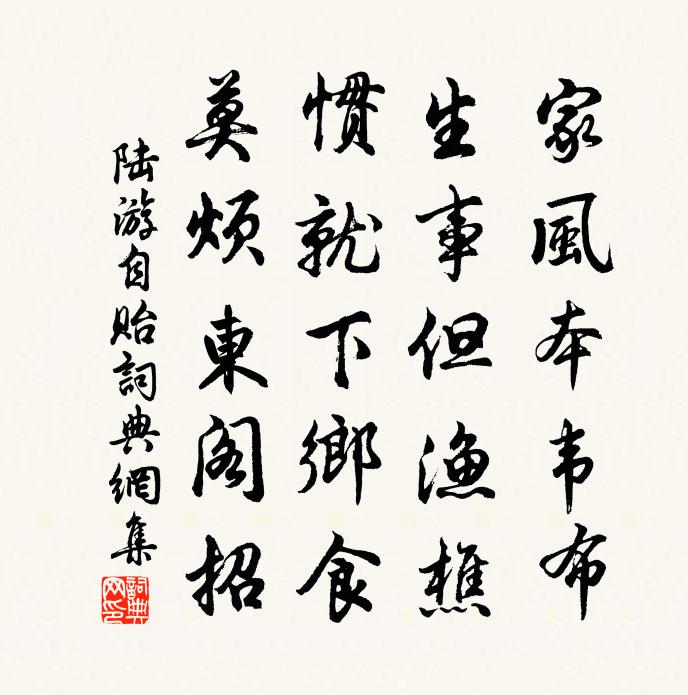 家風本韦布
生事但漁樵
慣就下鄉食
莫煩東阁招
陆游自貽詞典網集
詞典网印